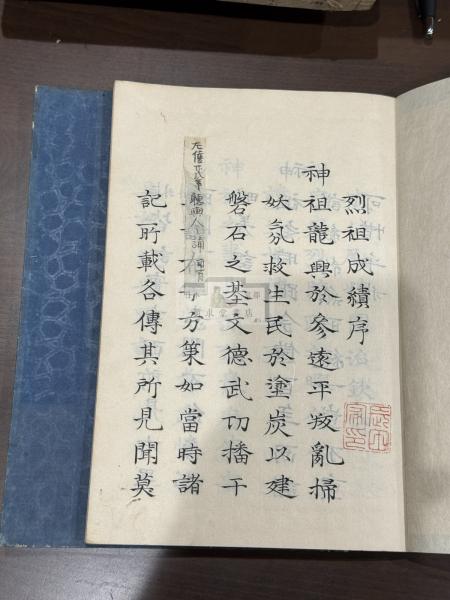 烈祖成績序
神祖龍興於參遠平叛亂掃
妖氛救生民於塗炭以建
磐石之基文德武功播于
方策如當時諸
記所載各傳其所見聞莫